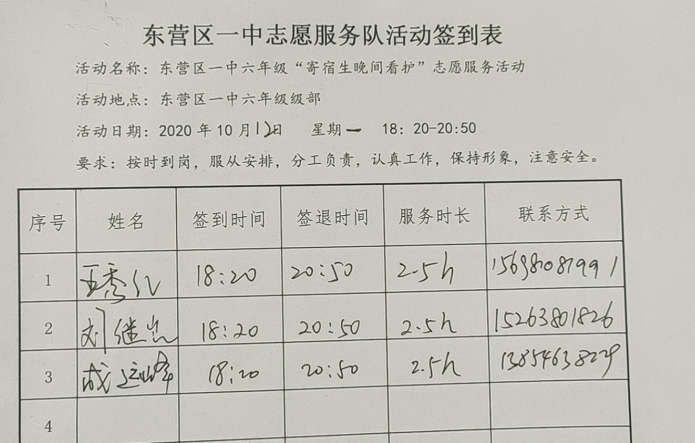 东营区一中志愿服务队活动签到表
活动名称：东营区一中六年级“寄宿生晚间看护”志愿服务活动
活动地点：东营区一中六年级级部
活动日期：2020年10月12日 星期一 18：20-20:50
要求：按时到岗，服从安排，分工负责，认真工作，保持形象，注意安全。
序号 姓名 签到时间 签退时间 服务时长 联系方式
1 18:20 20:50 2.5h
2 刘继 18:20 20:50 2.5h 15263801826
3 成运峰 18:20 20:50 2.5h 13854638229
4